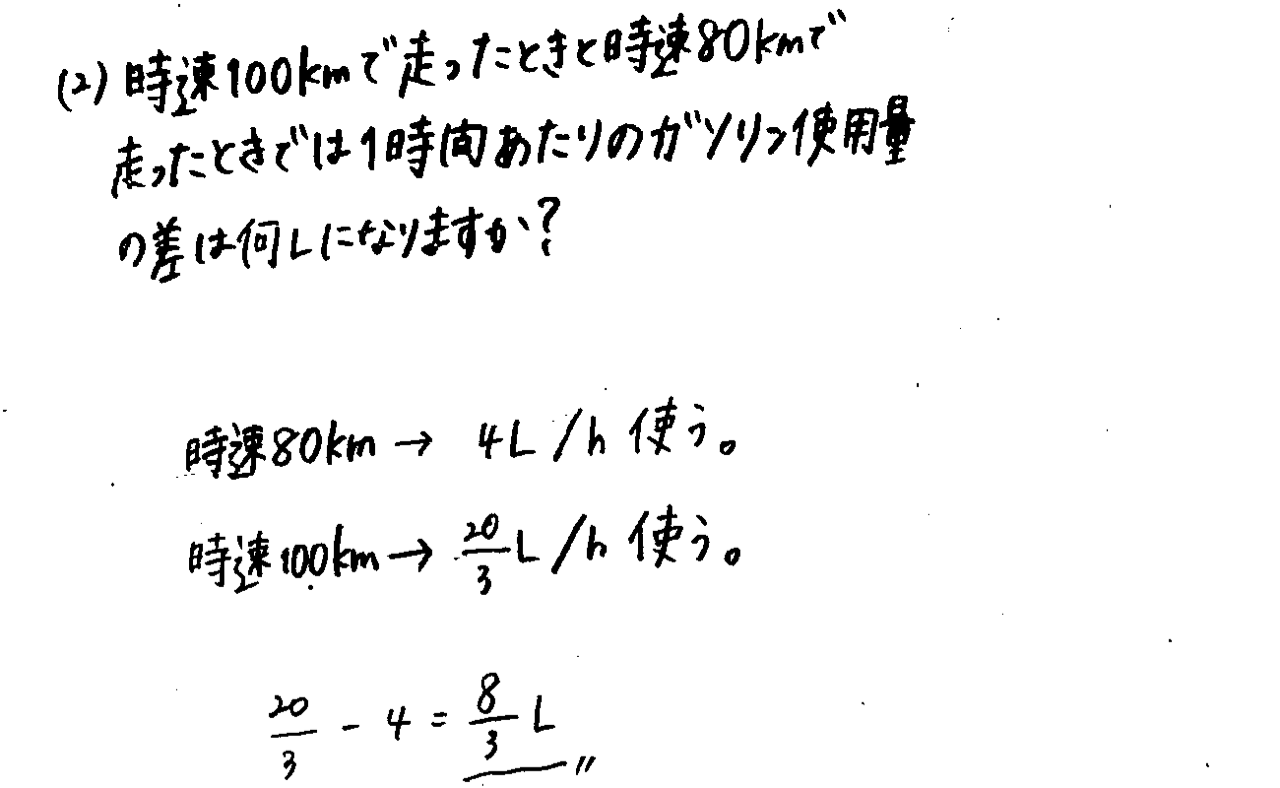 (2) 時速100kmで走ったときと時速80kmで
走ったときでは1時間あたりのガソリン使用量
の差は何Lになりますか?
時速80km → 4L/h 使う。
時速100km → 20/3 L/h 使う。
20/3 - 4 = 8/3 L